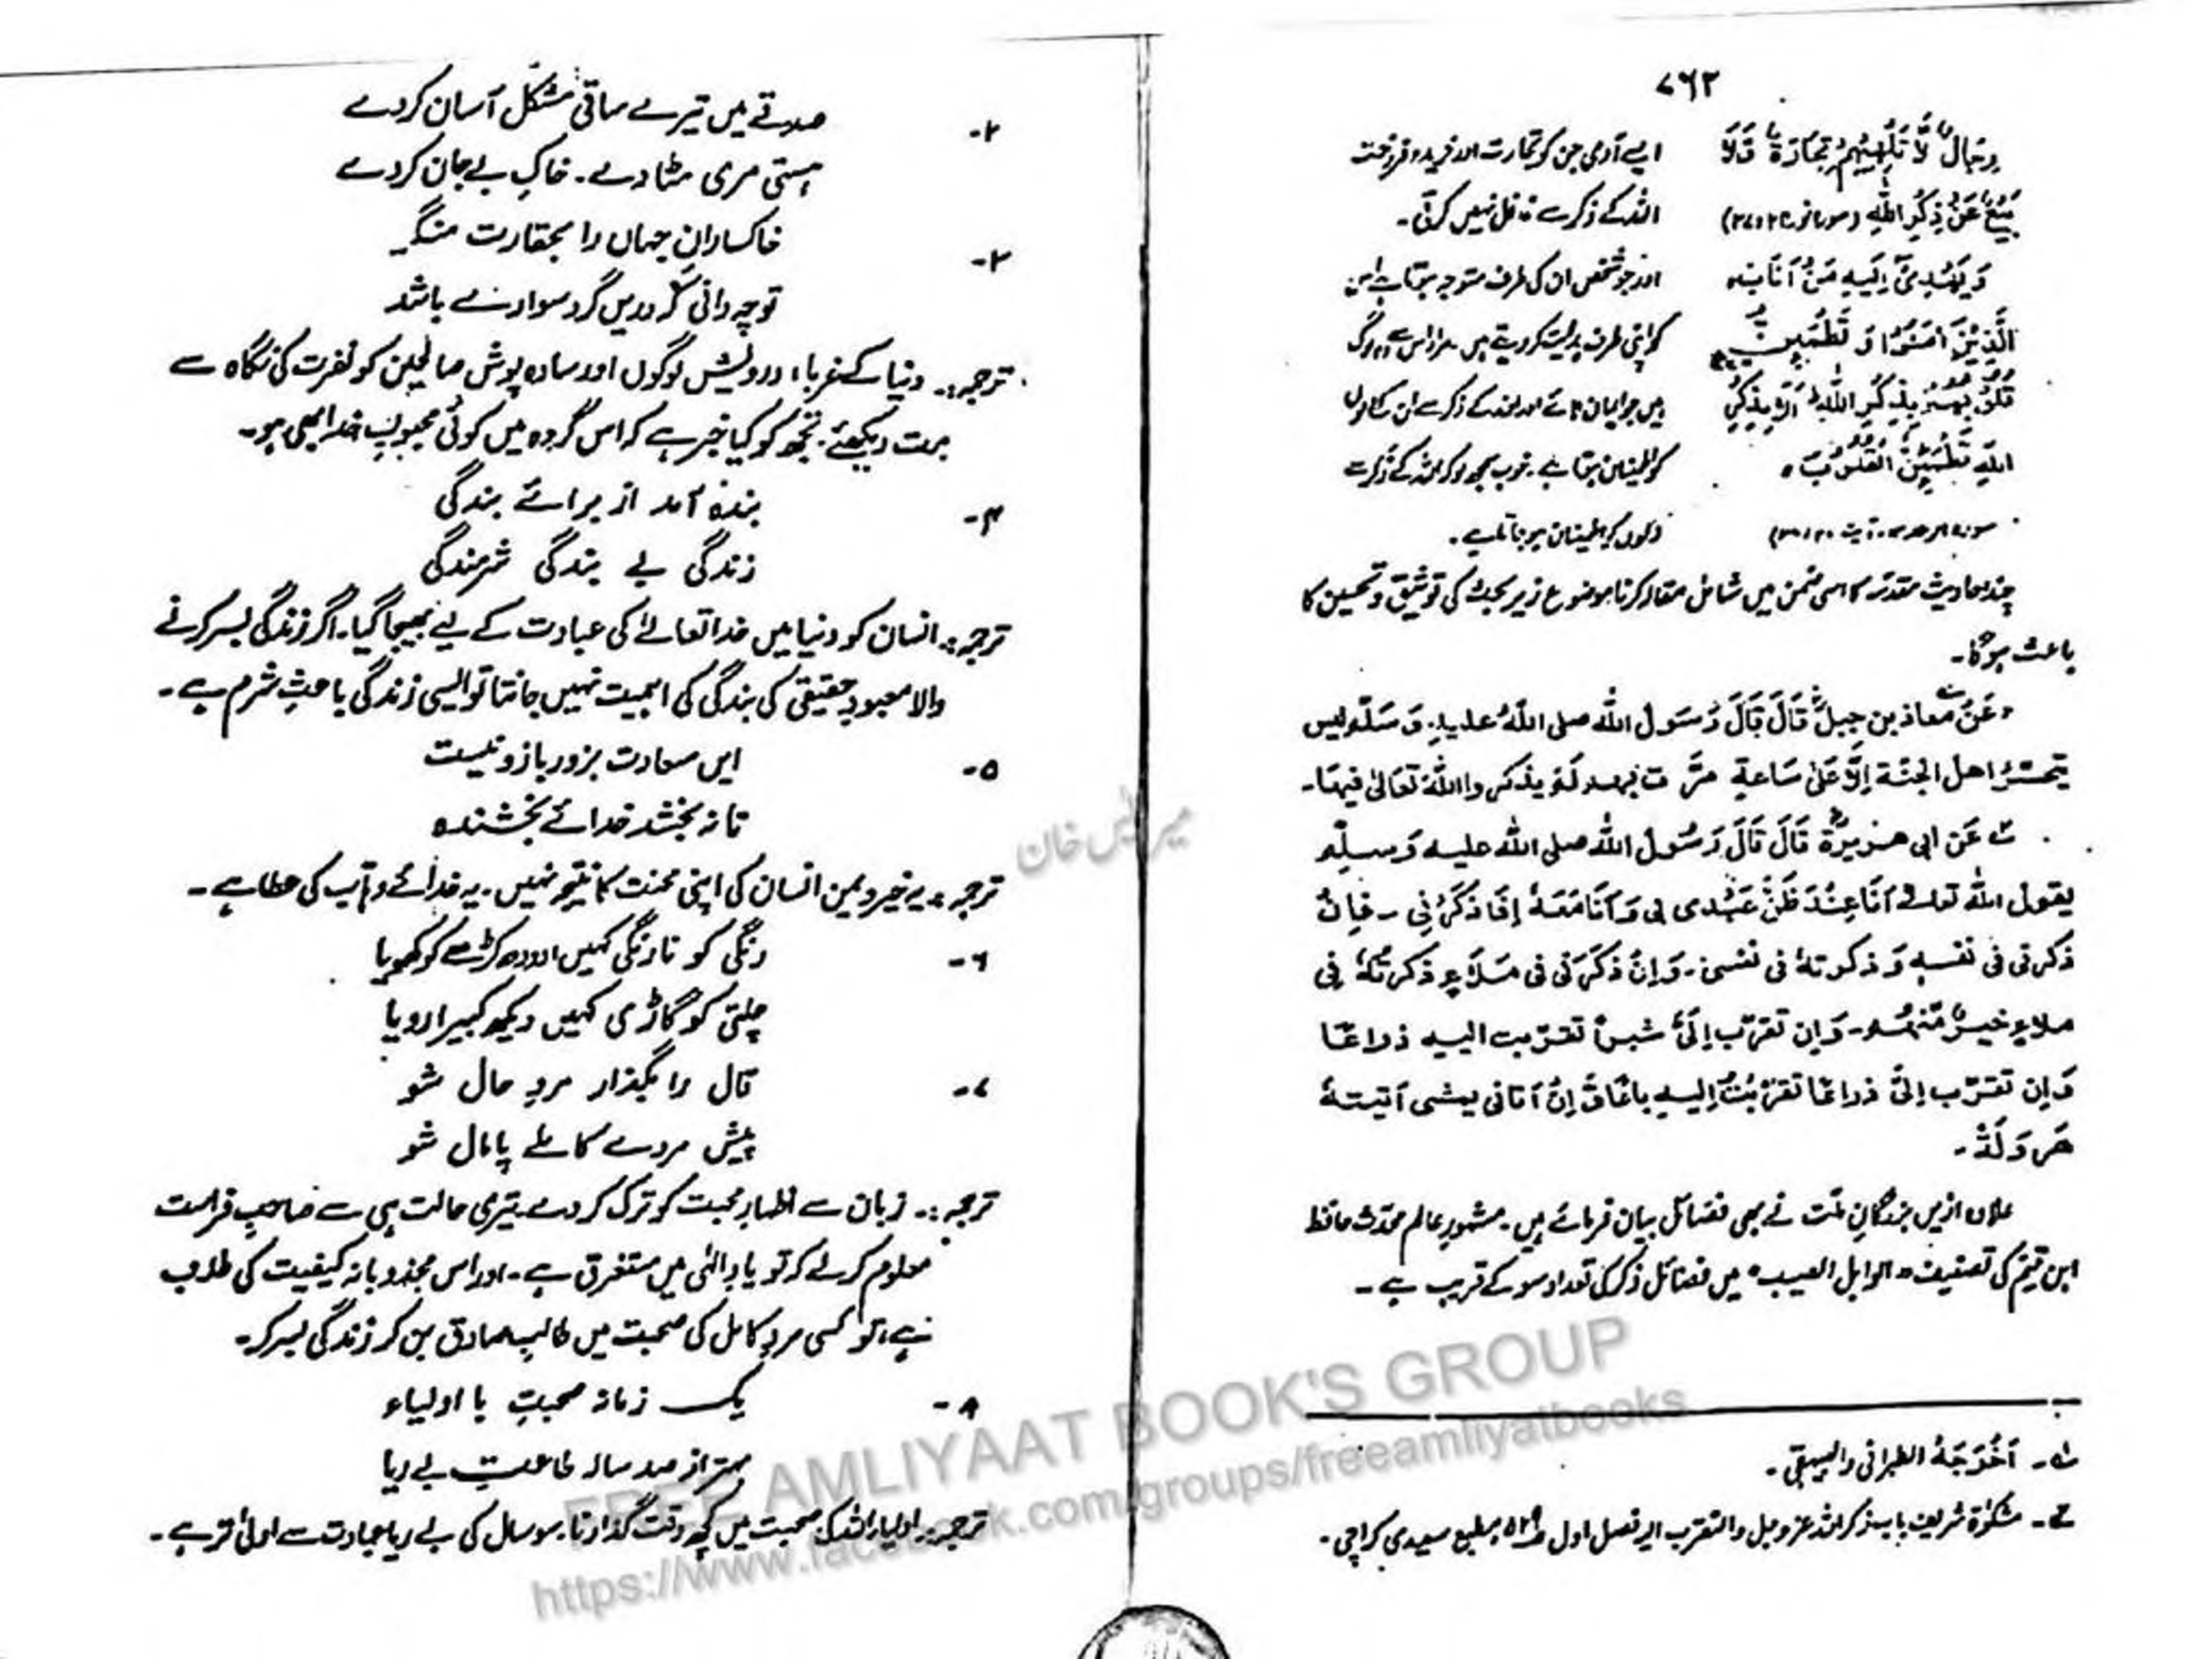 ۷۶۲
رِجَالٌ لَّا تُلْهِيْهِمْ تِجَارَةٌ وَّلَا
ایسے آدمی جن کو تجارت اور خرید و فروخت
بَيْعٌ عَنْ ذِكْرِ اللّٰهِ (سورۃ نور
اللہ کے ذکر سے غافل نہیں کرتی۔
وَيَهْدِىْٓ اِلَيْهِ مَنْ اَنَابَ ہ
اور جو شخص ان کی طرف متوجہ ہوتا ہے اس
الَّذِيْنَ اٰمَنُوْا وَ تَطْمَئِنُّ
کو اپنی طرف ہدایت کر دیتے ہیں۔ مراد اس سے وہ لوگ
قُلُوْبُهُمْ بِذِكْرِ اللّٰهِ ط اَلَا بِذِكْرِ
ہیں جو ایمان لائے اور اللہ کے ذکر سے ان کے دلوں
اللّٰهِ تَطْمَئِنُّ الْقُلُوْبُ ہ
کو اطمینان ہوتا ہے۔ خوب سمجھ لو کہ اللہ کے ذکر سے
سورہ الرعد۔ آیت
دلوں کو اطمینان ہو جاتا ہے۔
چند احادیث مقدسہ کا اسی ضمن میں شامل مقالہ کرنا موضوع زیر بحث کی توثیق و تحسین کا
باعث ہوگا۔
عَنْ معاذ بن جبلؓ قَالَ قَالَ رَسُولُ اللّٰه صلی اللّٰهُ علیہِ وَسَلَّم لیس
یتحسّرُ اھل الجنّة اِلَّا عَلٰی سَاعةٍ مرَّت بِھِم لَم یذکروا اللّٰهَ تَعَالٰی فیھَا۔
عَن ابی ھریرةؓ قَالَ قَالَ رَسُولُ اللّٰه صلی اللّٰه علیہ وَسلّم
یقول اللّٰه تعالٰی اَنَا عِنْدَ ظَنِّ عَبْدی بی وَ اَنَا مَعَہٗ اِذَا ذَکَرَنِی ۔ فَاِنْ
ذکرنی فی نفسہٖ وَ ذکرتہٗ فی نفسی۔ وَاِنْ ذکَرَنی فی مَلَاءٍ ذکرتُہٗ فِی
ملاءٍ خیرٌ مّنھُم۔ وَاِن تقرّب اِلَیَّ شبراً تقرّبت الیہ ذراعًا
وَاِن تقرّب اِلیَّ ذراعًا تَقَرَّبْتُ اِلیہِ بَاعًا وَّ اِنْ اَتانی یمشی اَتیتہٗ
ھَروَلَةً۔
علاوہ ازیں بزرگانِ ملّت نے بھی فضائل بیان فرمائے ہیں۔ مشہورِ عالم محدّث حافظ
ابن قیمؒ کی تصنیف "الوابل الصیب" میں فضائل ذکر کی تعداد سو کے قریب ہے۔
۱۔ اَخْرَجَہٗ الطبرانی والبیہقی۔
۲۔ مشکوٰۃ شریف باب ذکر اللہ عزوجل والتقرب الیہ فصل اول مطبع سعیدی کراچی۔
۲۔ صدقے میں تیرے ساقی مشکل آسان کر دے
ہستی مری مٹا دے۔ خاکِ بے جان کر دے
۳۔ خاکسارانِ جہاں را بحقارت منگر
تو چہ دانی کہ دریں گرد سوارے باشد
ترجمہ:۔ دنیا کے غرباء، درویش لوگوں اور سادہ پوش صالحین کو نفرت کی نگاہ سے
مت دیکھئے۔ تجھ کو کیا خبر ہے کہ اس گروہ میں کوئی محبوبِ خدا بھی ہو۔
۴۔ بندہ آمد از برائے بندگی
زندگی بے بندگی شرمندگی
ترجمہ:۔ انسان کو دنیا میں خدا تعالےٰ کی عبادت کے لیے بھیجا گیا۔ اگر زندگی بسر کرنے
والا معبودِ حقیقی کی بندگی کی اہمیت نہیں جانتا تو ایسی زندگی باعثِ شرم ہے۔
۵۔ ایں سعادت بزور بازو نیست
تا نہ بخشد خدائے بخشندہ
ترجمہ:۔ یہ خیر و یمن انسان کی اپنی محنت کا نتیجہ نہیں۔ یہ خدائے وہاب کی عطا ہے۔
۶۔ رنگی کو نارنگی کہیں اور دودھ کڑھے کو کھویا
چلتی کو گاڑی کہیں دیکھ کبیرا رویا
۷۔ قال را بگذار مردِ حال شو
پیش مردے کاملے پامال شو
ترجمہ:۔ زبان سے اظہارِ محبت کو ترک کر دے۔ تیری حالت ہی سے صاحبِ فراست
معلوم کر لے کہ تو یادِ الٰہی میں مستغرق ہے۔ اور اس مجذوبانہ کیفیت کی طلب
ہے، تو کسی مردِ کامل کی صحبت میں طالبِ صادق بن کر زندگی بسر کر۔
۸۔ یک زمانہ صحبتِ با اولیاء
بہتر از صد سالہ طاعتِ بے ریا
ترجمہ:۔ اولیاء اللہ کی صحبت میں کچھ وقت گذارنا۔ سو سال کی بے ریا عبادت سے اولیٰ تر ہے۔
FREE AMLIYAAT BOOK'S GROUP
https://www.facebook.com/groups/freeamliyatbooks